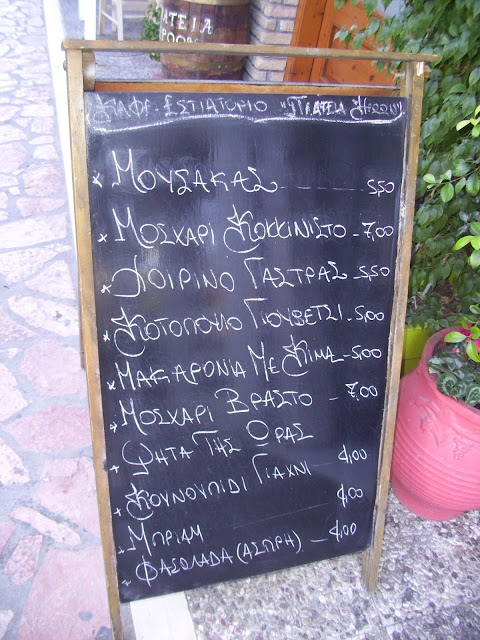 ΠΛΑΤΕΙΑ
ΗΡΩΩΝ
ΚΑΦΕ - ΕΣΤΙΑΤΟΡΙΟ "ΠΛΑΤΕΙΑ ΗΡΩΩΝ"
* ΜΟΥΣΑΚΑΣ ---- 5,50
* ΜΟΣΧΑΡΙ ΚΟΚΚΙΝΙΣΤΟ - 7,00
* ΧΟΙΡΙΝΟ ΓΑΣΤΡΑΣ - 5,50
* ΚΟΤΟΠΟΥΛΟ ΓΙΟΥΒΕΤΣΙ - 5,00
* ΜΑΚΑΡΟΝΙΑ ΜΕ ΚΙΜΑ - 5,00
* ΜΟΣΧΑΡΙ ΒΡΑΣΤΟ - 7,00
* ΨΗΤΑ ΤΗΣ ΩΡΑΣ
* ΚΟΥΝΟΥΠΙΔΙ ΓΙΑΧΝΙ - 4,00
* ΜΠΡΙΑΜ 4,00
* ΦΑΣΟΛΑΔΑ (ΑΣΠΡΗ) - 4,00